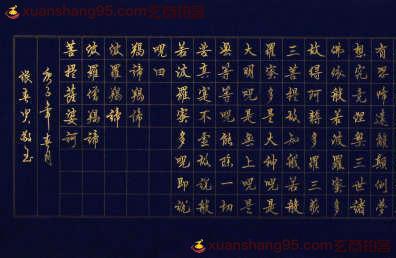 xuanshang95.com玄商拍唱
有恐怖遠離顛倒夢
想究竟涅槃三世諸
佛依般若波羅蜜多
故得阿耨多羅三藐
三菩提故知般若波
羅蜜多是大神咒是
大明咒是無上咒是
無等等咒能除一切
苦真實不虛故說般
若波羅蜜多咒即說
咒曰
揭諦揭諦
波羅揭諦
波羅僧揭諦
菩提薩婆訶
庚子年春月
xuanshang95.com